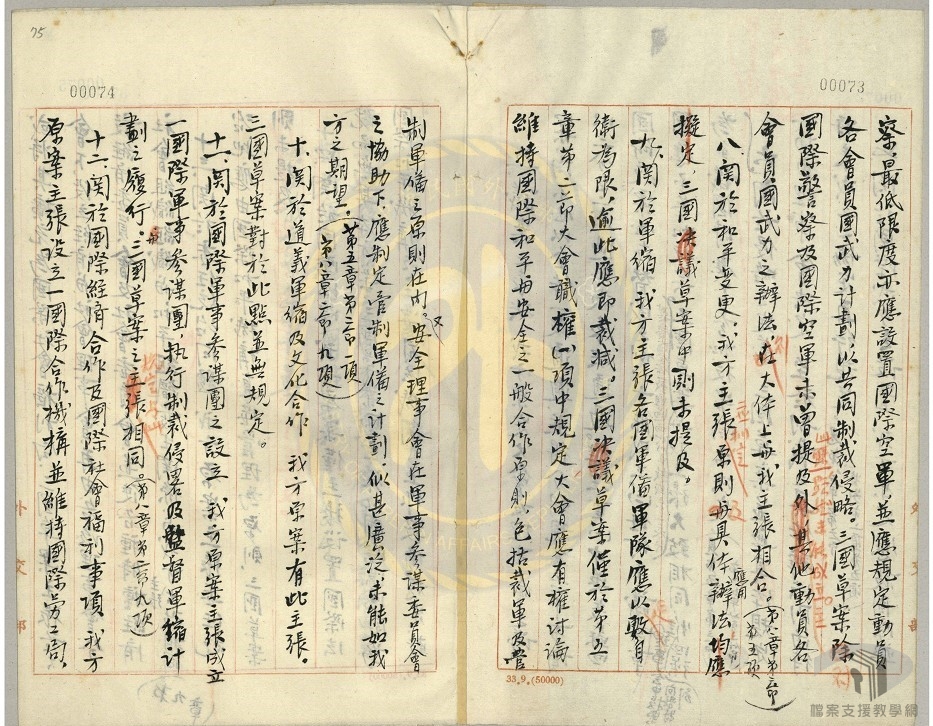 00073
察，最低限度亦應設置國際空軍並應規定動員
各會員國武力計劃，以共同制裁侵略。三國草案除
國際警察及國際空軍未曾提及外，其他動員各
會員國武力之辦法，在大体上與我主張相合。（第八章第二節第五項）
八、関於和平变更。我方主張原則與具体辦法均應
擬定，三國決議草案中則未提及。
九、関於軍縮 我方主張各國軍備軍隊應以毅自
衛為限，逾此應即裁減。三國決議草案僅於第五
章第二節大會職權(一)項中規定大會應有權討論
維持國際和平與安全之一般合作原則，包括裁軍及管
33.9.(50000)
75
00074
制軍備之原則在內。又安全理事會在軍事參謀委員會
之協助下，應制定管制軍備之計劃，似甚廣泛未能如我
方之期望。（第五章第二節一項 第八章二節九項）
十、関於道義軍縮及文化合作 我方原案有此主張。
三國草案對於此點並無規定。
十一、関於國際軍事參謀團之設立 我方原案主張成立
一國際軍事參謀團，执行制裁侵畧及監督軍縮計
劃之履行。三國草案之主張相同（第八章第二節九項）
十二、関於國際経済合作及國際社會福利事項 我方
原案主張設立一國際合作機構並維持國際勞工局。
外交部
檔案支援教學網